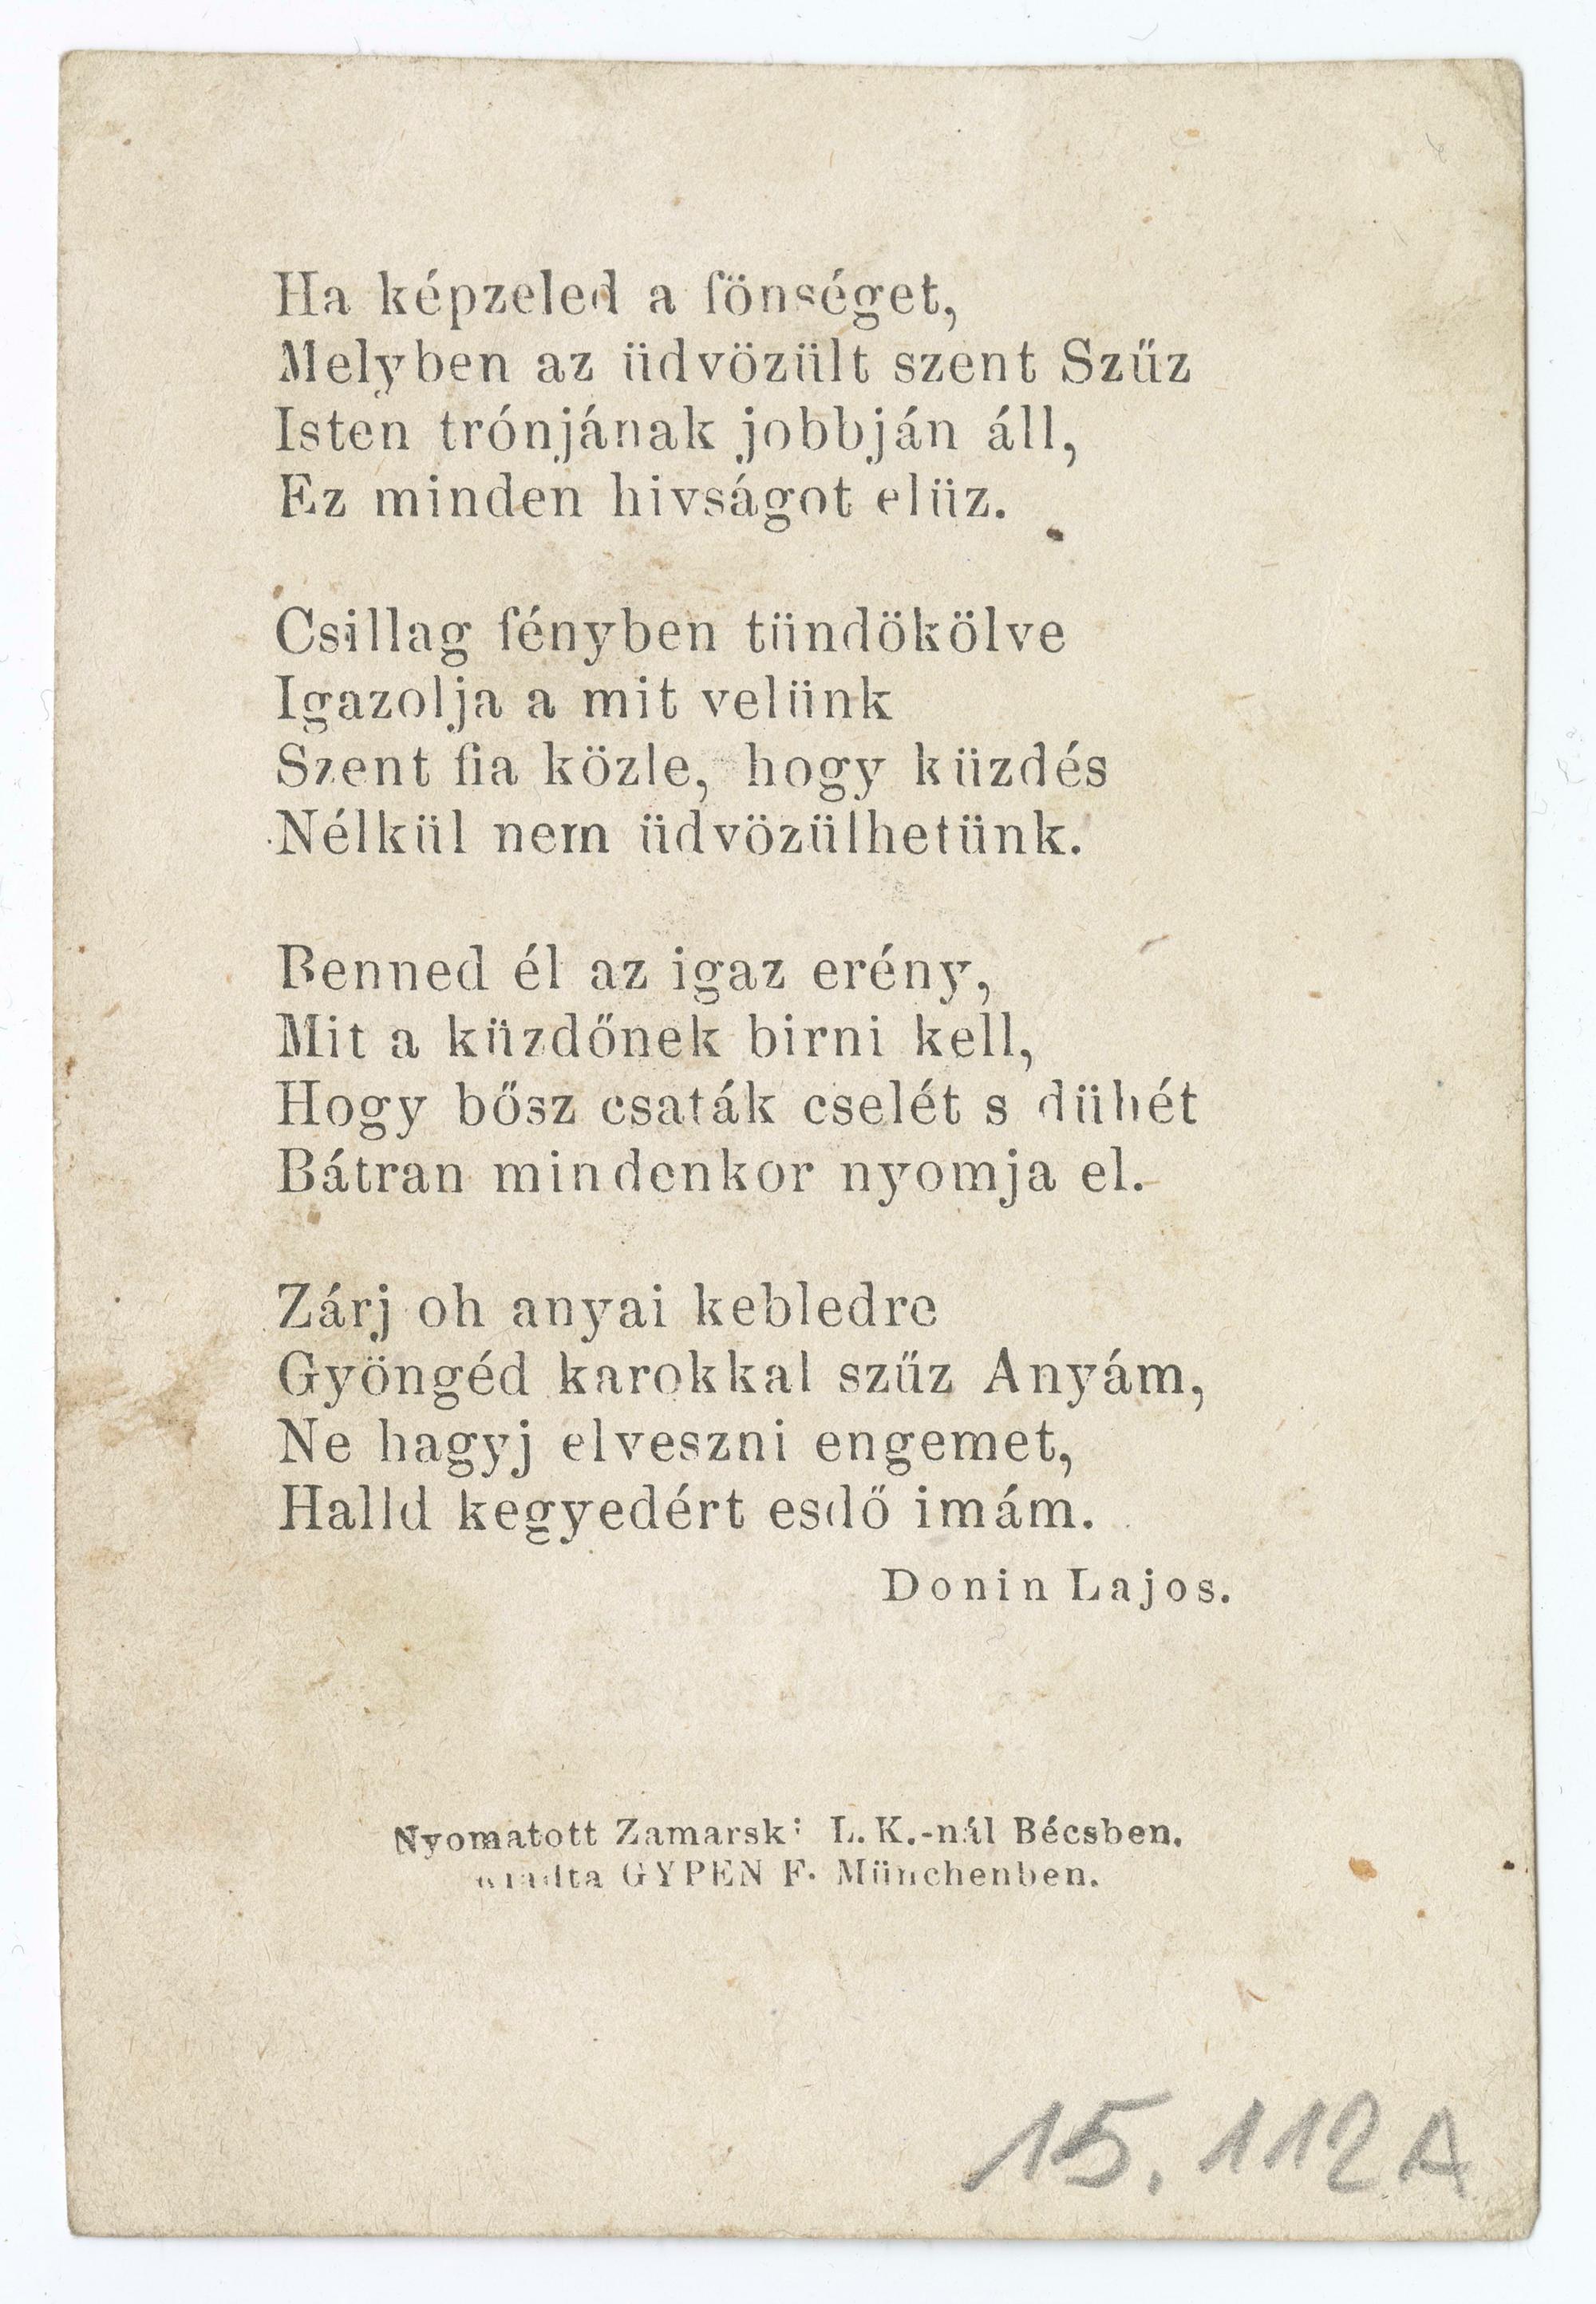 Ha képzeled a fönséget,
Melyben az üdvözült szent Szűz
Isten trónjának jobbján áll,
Ez minden hivságot elüz.
Csillag fényben tündökölve
Igazolja a mit velünk
Szent fia közle, hogy küzdés
Nélkül nem üdvözülhetünk.
Benned él az igaz erény,
Mit a küzdőnek birni kell,
Hogy bősz csaták cselét s dühét
Bátran mindenkor nyomja el.
Zárj oh anyai kebledre
Gyöngéd karokkal szűz Anyám,
Ne hagyj elveszni engemet,
Halld kegyedért esdő imám.
Donin Lajos.
Nyomatott Zamarski L. K.-nál Bécsben.
Kiadta GYPEN F. Münchenben.
15.112A